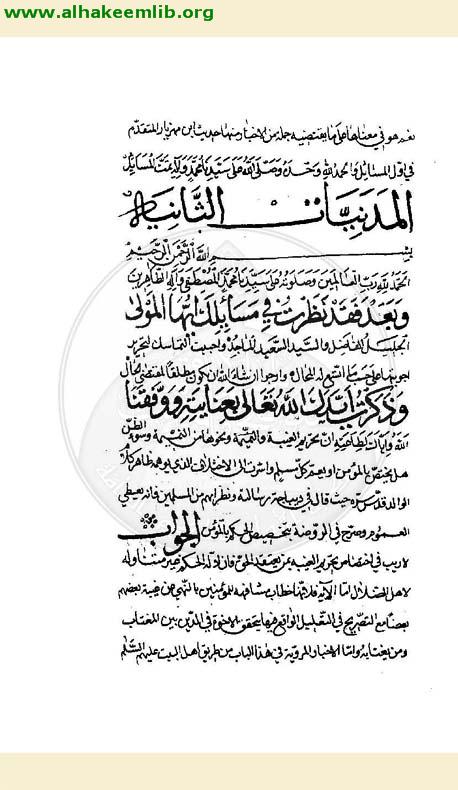 www.alhakeemlib.org
نعم هو في معناها على ما يقتضيه جملة من الاخبار منها حديث ابن مهزيار المتقدم
في اول المسائل والحمد لله وحده وصلى الله على سيدنا محمد وآله تمت المسائل
المدنيات الثانية
بسم الله الرحمن الرحيم
الحمد لله رب العالمين وصلوته على سيدنا محمد المصطفى وآله الطاهرين
وبعد فقد نظرت في مسائلك ايها المولى
الجليل الفاضل والسيد السعيد الماجد واجبت التماسك لتحرير
اجوبتها على حسب ما اتسع له المجال وارجو ان شاء الله ان يكون مطلقا لمقتضى الحال
وذكرت ايدك الله تعالى بعنايته ووفقنا
الله واياك لطاعته ان تحريم الغيبة والتهمة ونحوهما من النميمة وسوء الظن
هل يختص بالمؤمن او يعم كل مسلم واشرتم الى الاختلاف الذي يوهمه ظاهر كلام
الوالد قدس سره حيث قال في ديباجة رسالته ونظرائهم من المسلمين فانه يعطي
العموم وصرح في الروضة بتخصيص الحكم بالمؤمن الجواب
لا ريب في اختصاص تحريم الغيبة بمن يعتقد الحق فان ادلة الحكم غير متناوله
لاهل الضلال اما الآية فلانها خطاب مشافهة للمؤمنين بالنهي عن غيبة بعضهم
بعضا مع التصريح في التعليل الواقع فيها بتحقق الاخوة في الدين بين المغتاب
ومن يغتابه واما الاخبار المروية في هذا الباب من طريق اهل البيت عليهم السلام